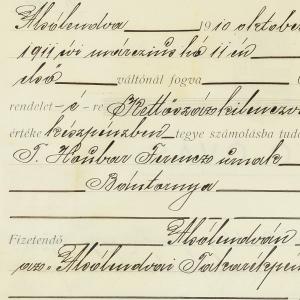 Alsólendva 1910 október
1911 évi márczius hó 11 én
első váltónál fogva
rendelet -é- re Kettőszázkilenczv
értéke készpénzben tegye számolásba tud
T. Houbar Ferencz úrnak
Bántornya
Fizetendő Alsólendván
az Alsólendvai Takarékpén